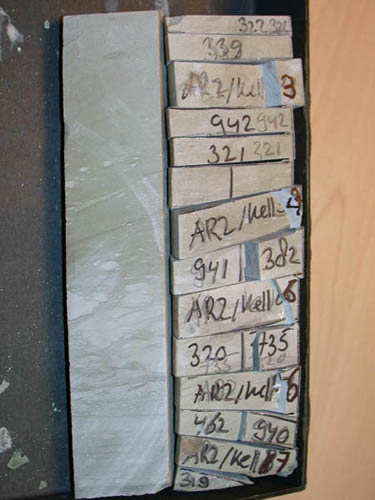 322 322
339
AR2/Kell 3
942 942
321 321
AR2/Kell-4
941 382
AR2/Kell 5
320 735
735 20
AR2/Kell-6
462 940
AR2/Kell 7
319